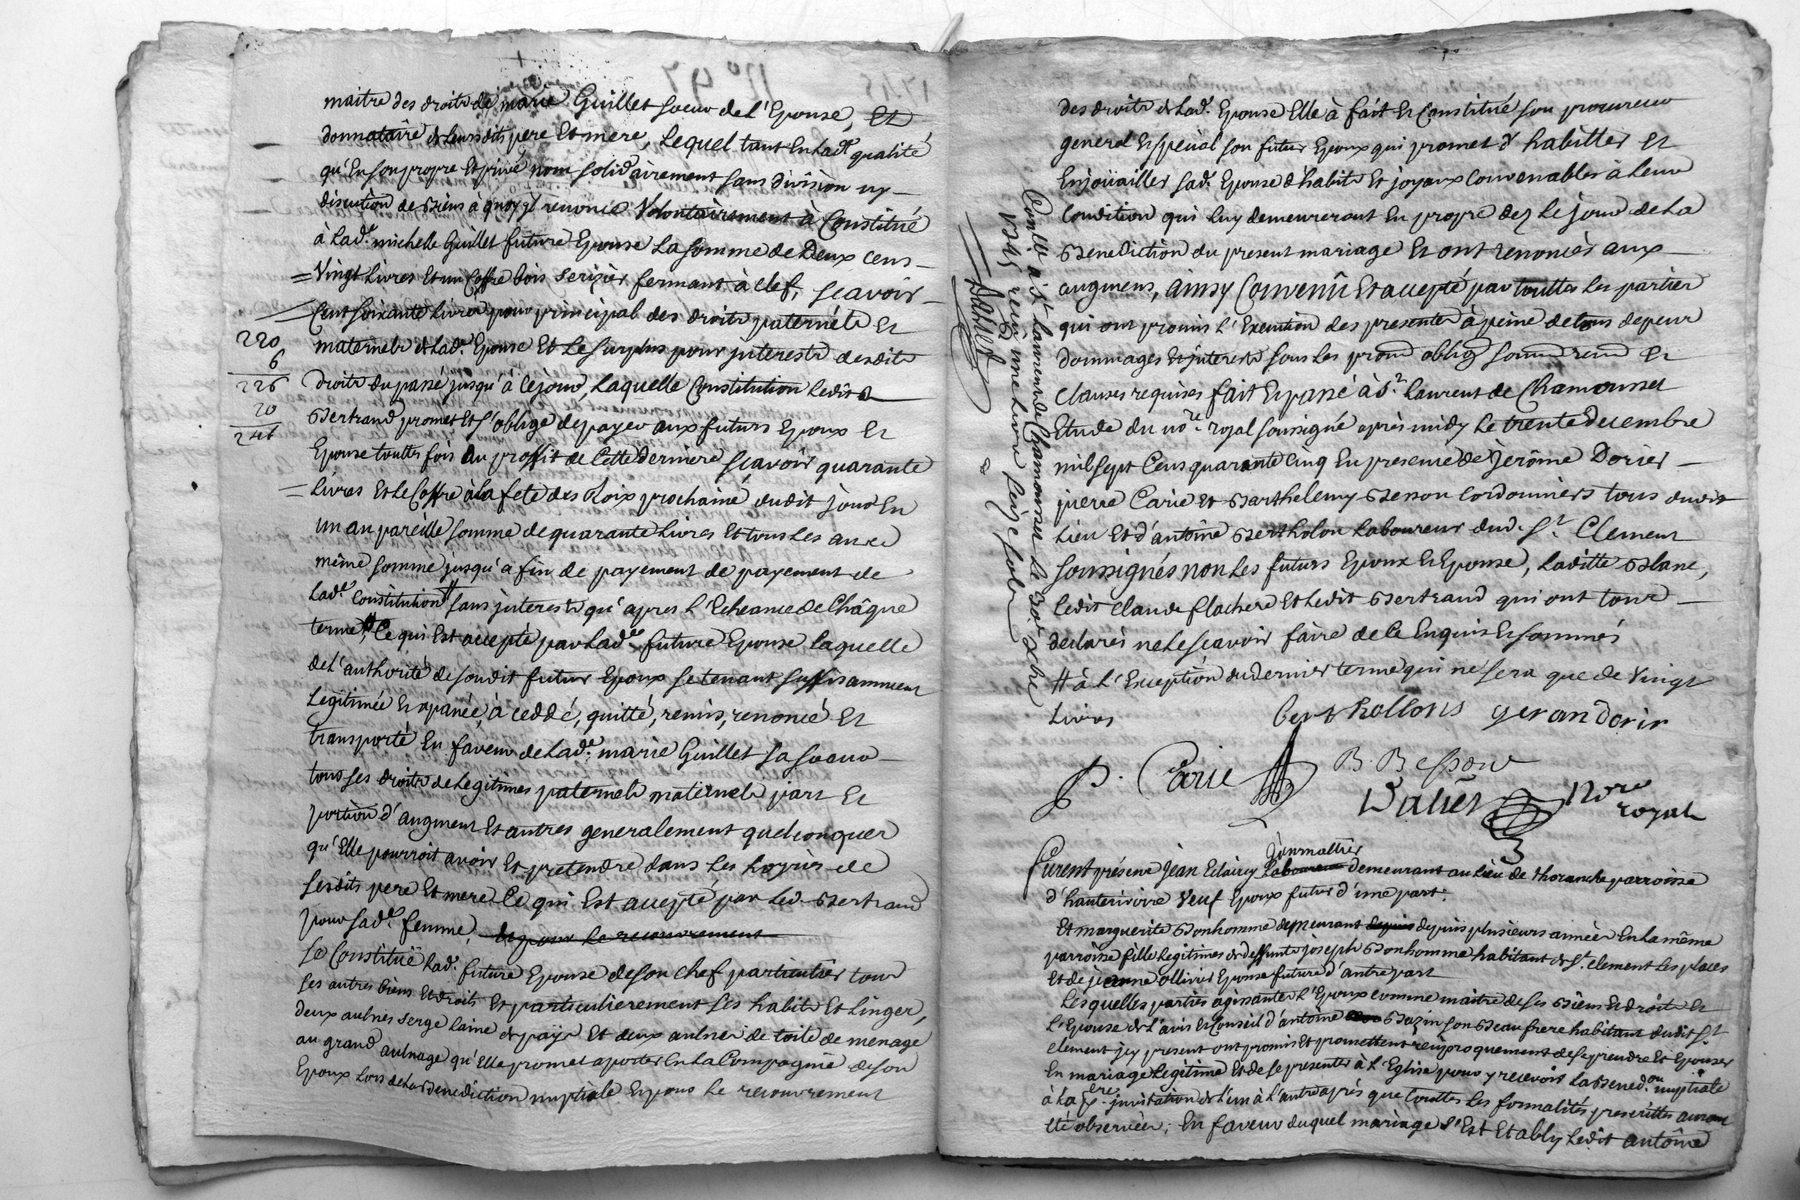 maitre des droits de marie Guillet soeur de l'Epouse, Et
donnataire de leursdits pere Et mere, Lequel tant En lad.e qualité
qu'En son propre Et privé nom solidairement sans division ny
discution de biens a quoy il renonce Volontairement à Constitué
à lad.e michelle Guillet future Epouse La somme de Deux cens
Vingt Livres Et un Coffre bois serizier fermant à clef, scavoir
Cent soixante Livres pour principal des droits paternels Et
maternels de lad.e Epouse Et Le surplus pour jnterests desdits
droits du passé jusqu'à cejour, Laquelle Constitution Ledit
Bertrand promet Et s'oblige de payer aux futurs Epoux Et
Epouse touttes fois au proffit de Cette derniere scavoir quarante
Livres Et Le Coffre à la fete des Roix prochaine, dudit jour En
un an pareille somme de quarante Livres Et tous Les ans
même somme jusqu'à fin de payement de payement de
Lad.e Constitution sans jnterests qu'apres l'Echeance de Châque
terme # Ce qui Est accepté par Lad.e future Epouse laquelle
de l'authorité de sondit futur Epoux se tenant suffisamment
Legitimée Et apanée, à ceddé, quitté, remis, renoncé Et
transporté En faveur de Lad.e marie Guillet sa soeur
tous ses droits de Legitimes paternels maternels part Et
portion d'augment Et autres generalement quelconques
qu'Elle pourroit avoir Et pretendre dans Les hoyries de
sesdits pere Et mere Ce qui Est accepté par Led. Bertrand
pour sad.e femme, Et pour Le recouvrement
Se Constitue Lad.e future Epouse de son chef particulier tous
ses autres biens Et droits Et particulierement ses habits Et Linges,
deux aulnes serge laine de pays Et deux aulnes de toile de menage
au grand aulnage qu'Elle promet aporter En La Compagnie de son
Epoux Lors de La Benediction nuptiale Et pour Le recouvrement
220
6
226
20
246
des droits de Lad.e Epouse Elle à fait Et Constitué son procureur
general Et special son futur Epoux qui promet d'habiller Et
Enjoüailler sad.e Epouse d'habits Et joyaux Convenables à Leur
Condition qui Luy demeureront En propre dez Le jour de La
Benediction du present mariage Et ont renoncés aux
augmens, ainsy Convenû Et accepté par touttes Les parties
qui ont promis L'Execution des presentes à peine de tous depens
dommages Et jnterests sous Les prom oblig soum renon Et
Clauses requises fait Et passé à S.t Laurent de Chamousset
Etude du no.re royal soussigné après midy Le trente decembre
mil sept Cens quarante Cinq En presence de Jerôme Dorier
pierre Carie Et Barthelemy Besson Cordonniers tous dudit
Lieu Et d'antoine Bertholon Laboureur dud. S.t Clement
soussignés non Les futurs Epoux Et Epouse, Laditte Blanc,
Ledit Claude flachere Et Ledit Bertrand qui ont tous
declarés ne Le scavoir faire de ce Enquis Et sommés
# à L'Exception du dernier terme qui ne sera que de Vingt
Livres
berthollons geran dorir
P. Carie B. Besson
Dalier No.re
royal
Conllé à S.t Laurent de Chamousset Le 30.e xbre
1745 receu une Livre seize sols
Dalier
journallier
Furent présens Jean Eclairey Laboureur demeurant au Lieu de thoranche parroisse
d'hauterivoire Veuf Epoux futur d'une part.
Et marguerite Bonhomme demeurant depuis depuis plusieurs années En la même
parroisse fille Legitimes de deffunts joseph Bonhomme habitant de S.t Clement Les places
Et de jeanne ollivier Epouse future d'autre part
Lesquelles parties agissantes L'Epoux comme maitre de ses Biens Et droits Et
L'Epouse de L'avis Et Conseil d'antoine Bazin son Beaufrere habitant dudit S.t
Clement jcy present ont promis Et promettent reciproquement de se prendre Et Epouser
En mariage Legitime Et de se presenter à L'Eglise pour y recevoir La Bened.on nuptiale
à La p.ere jnvitation de L'un à L'autre après que touttes Les formalités prescrittes auront
Eté observées; En faveur duquel mariage S'Est Etably Ledit antoine